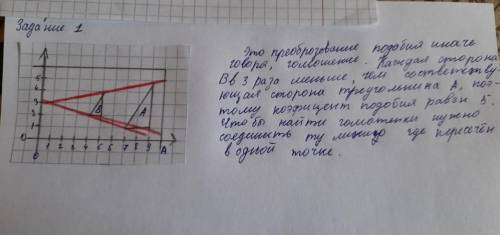 Задание 1
Это преоброзование подобия иначе
говоря, гомотение. Каждая сторона
В в 3 раза меньше, чем соответству-
ющая сторона треугольника А, поэ-
тому коэфицент подобия равен 5.
Что бы найти гомотетии нужно
соединить ту линию где пересечён
в одной точке.
6
5
4
3
2
1
0
В
А
0 1 2 3 4 5 6 7 8 9 А